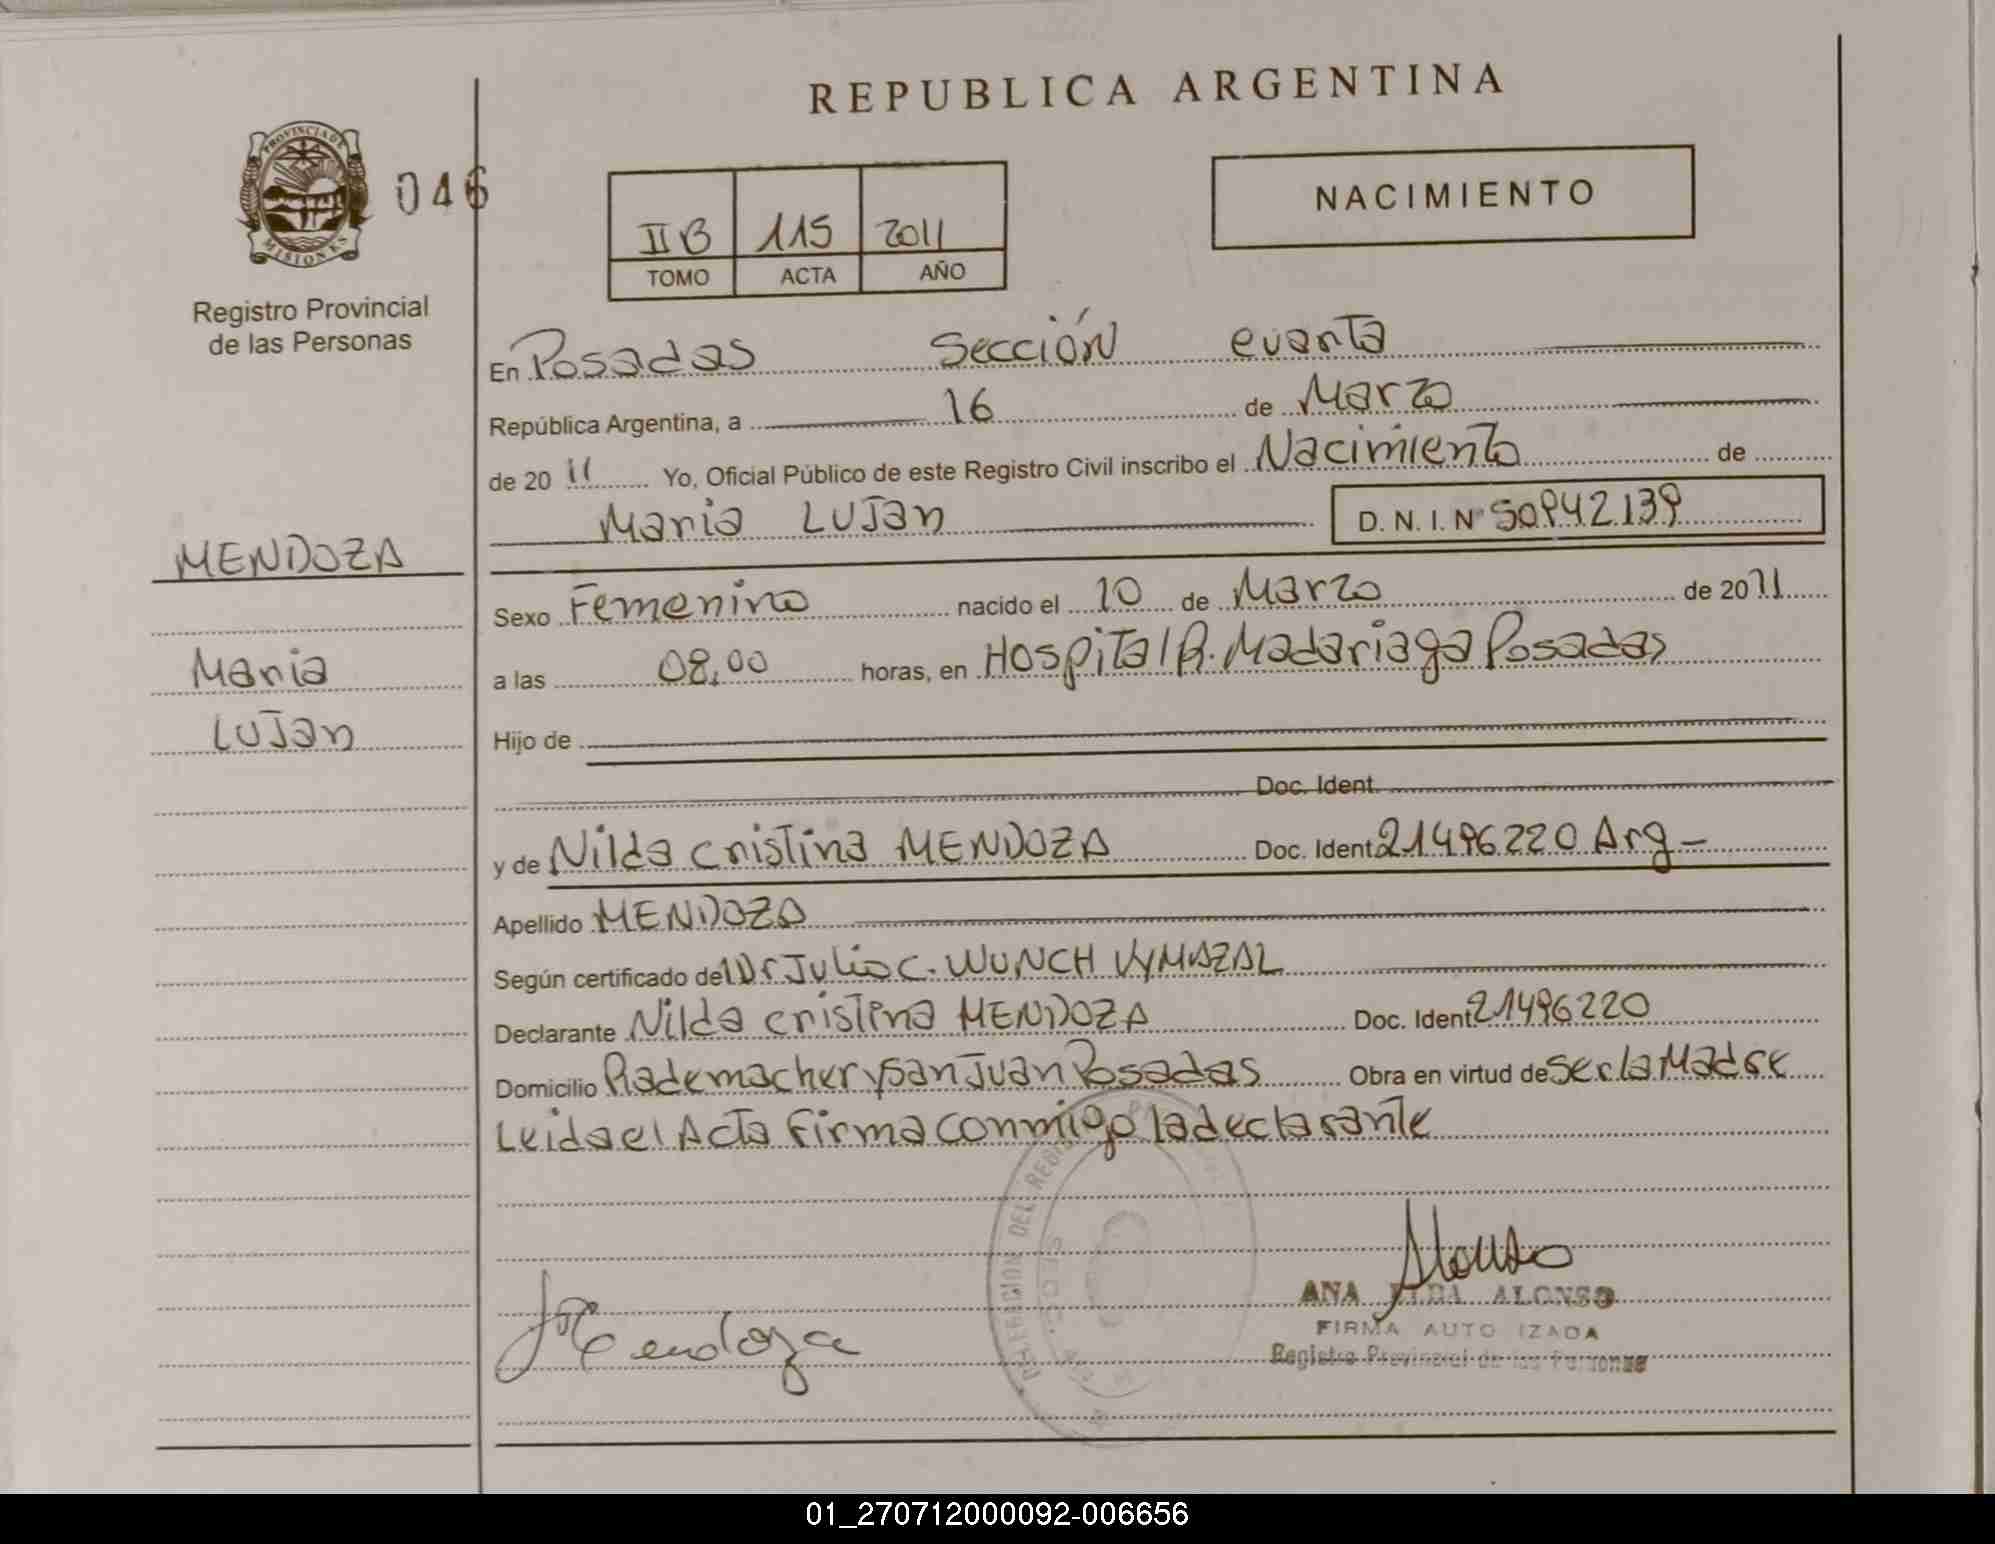 REPUBLICA ARGENTINA
PROVINCIA DE
MISIONES
046
Registro Provincial
de las Personas
II B 115 2011
TOMO ACTA AÑO
NACIMIENTO
En Posadas Sección cuarta
República Argentina, a 16 de Marzo
de 20 11 Yo, Oficial Público de este Registro Civil inscribo el Nacimiento de
Maria LUJan D. N. I. Nº 50942.139
MENDOZA
Maria
LUJan
Sexo Femenino nacido el 10 de Marzo de 20 11
a las 08,00 horas, en Hospital R. Madariaga Posadas
Hijo de
Doc. Ident.
y de Nilda Cristina MENDOZA Doc. Ident 21496220 Arg -
Apellido MENDOZA
Según certificado del Dr Julio C. WUNCH VYMAZAL
Declarante Nilda Cristina MENDOZA Doc. Ident. 21496220
Domicilio Rademacher y San Juan Posadas Obra en virtud de ser la Madre
Leida el Acta Firma conmigo la declarante
DELEGACION DEL REGIS
Mendoza
Alonso
ANA ELBA ALONSO
FIRMA AUTO IZADA
Registro Provincial de las Personas
01_270712000092-006656